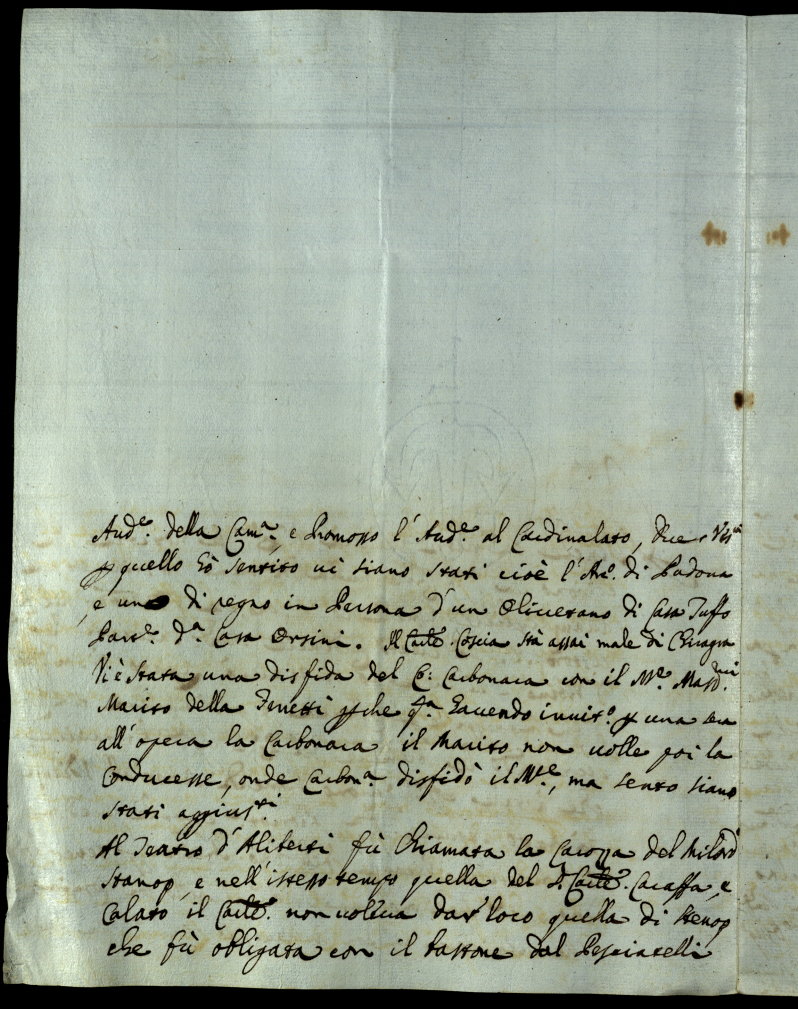 Aud.e della Cam.a, e Promosso l'Aud.e al Cardinalato, due Ves.i
p quello hò sentito vi siano stati cioè l'Arc. di Padova
e uno di regno in Persona d'un Olivetano di Casa Tuffo
Par.te d.a Casa Orsini. Il Card.e Coscia stà assai male di Chiragra
Vi è stata una disfida del C: Carbonara con il M.e
Marito della pche q.a havendo invit.o p una sera
all'opera la Carbonara il Marito non volle poi la
Conducesse, onde Carbon.a disfidò il M.se, ma sento siano
stati aggius.ti
Al Teatro d'Aliberti fù Chiamata la Carozza del Milord
Stanop, e nell'istesso tempo quella del S.r Card.e Caraffa, e
Calato il Card.e non voleva dar loco quella di Stenop
che fù obligata con il bastone dal Pesciatelli